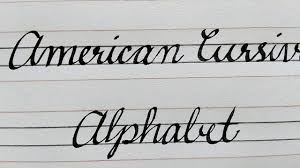 American Cursiv
Alphabet